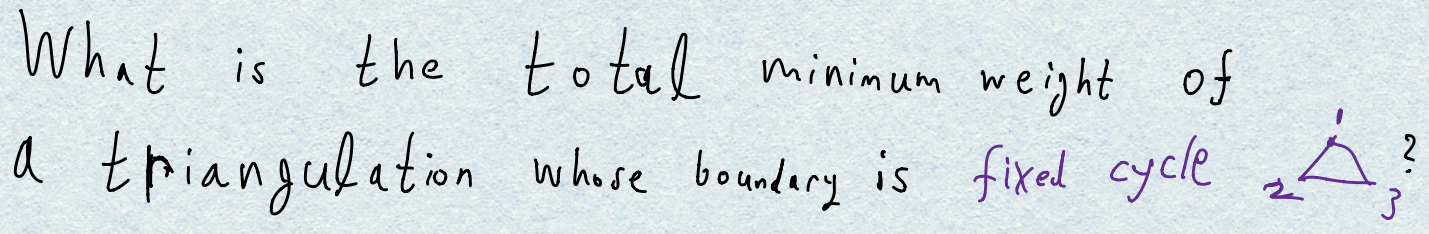 What is the total minimum weight of
a triangulation whose boundary is fixed cycle 1 2 3 ?